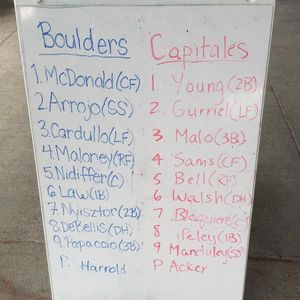 Boulders Capitales
1. McDonald(CF) 1. Young(2B)
2. Arrojo(SS) 2. Gurriel(LF)
3. Cardullo(LF) 3. Malo(3B)
4. Maloney(RF) 4. Sams(CF)
5 Nidiffer(C) 5 Bell(RF)
6 Law(1B) 6 Walsh(DH)
7. Nyisztor(2B) 7
8 DeBellis(DH) 8 Peley(1B)
9. Papaccio(3B) 9 Manduley(SS)
P. Harrold P Acker